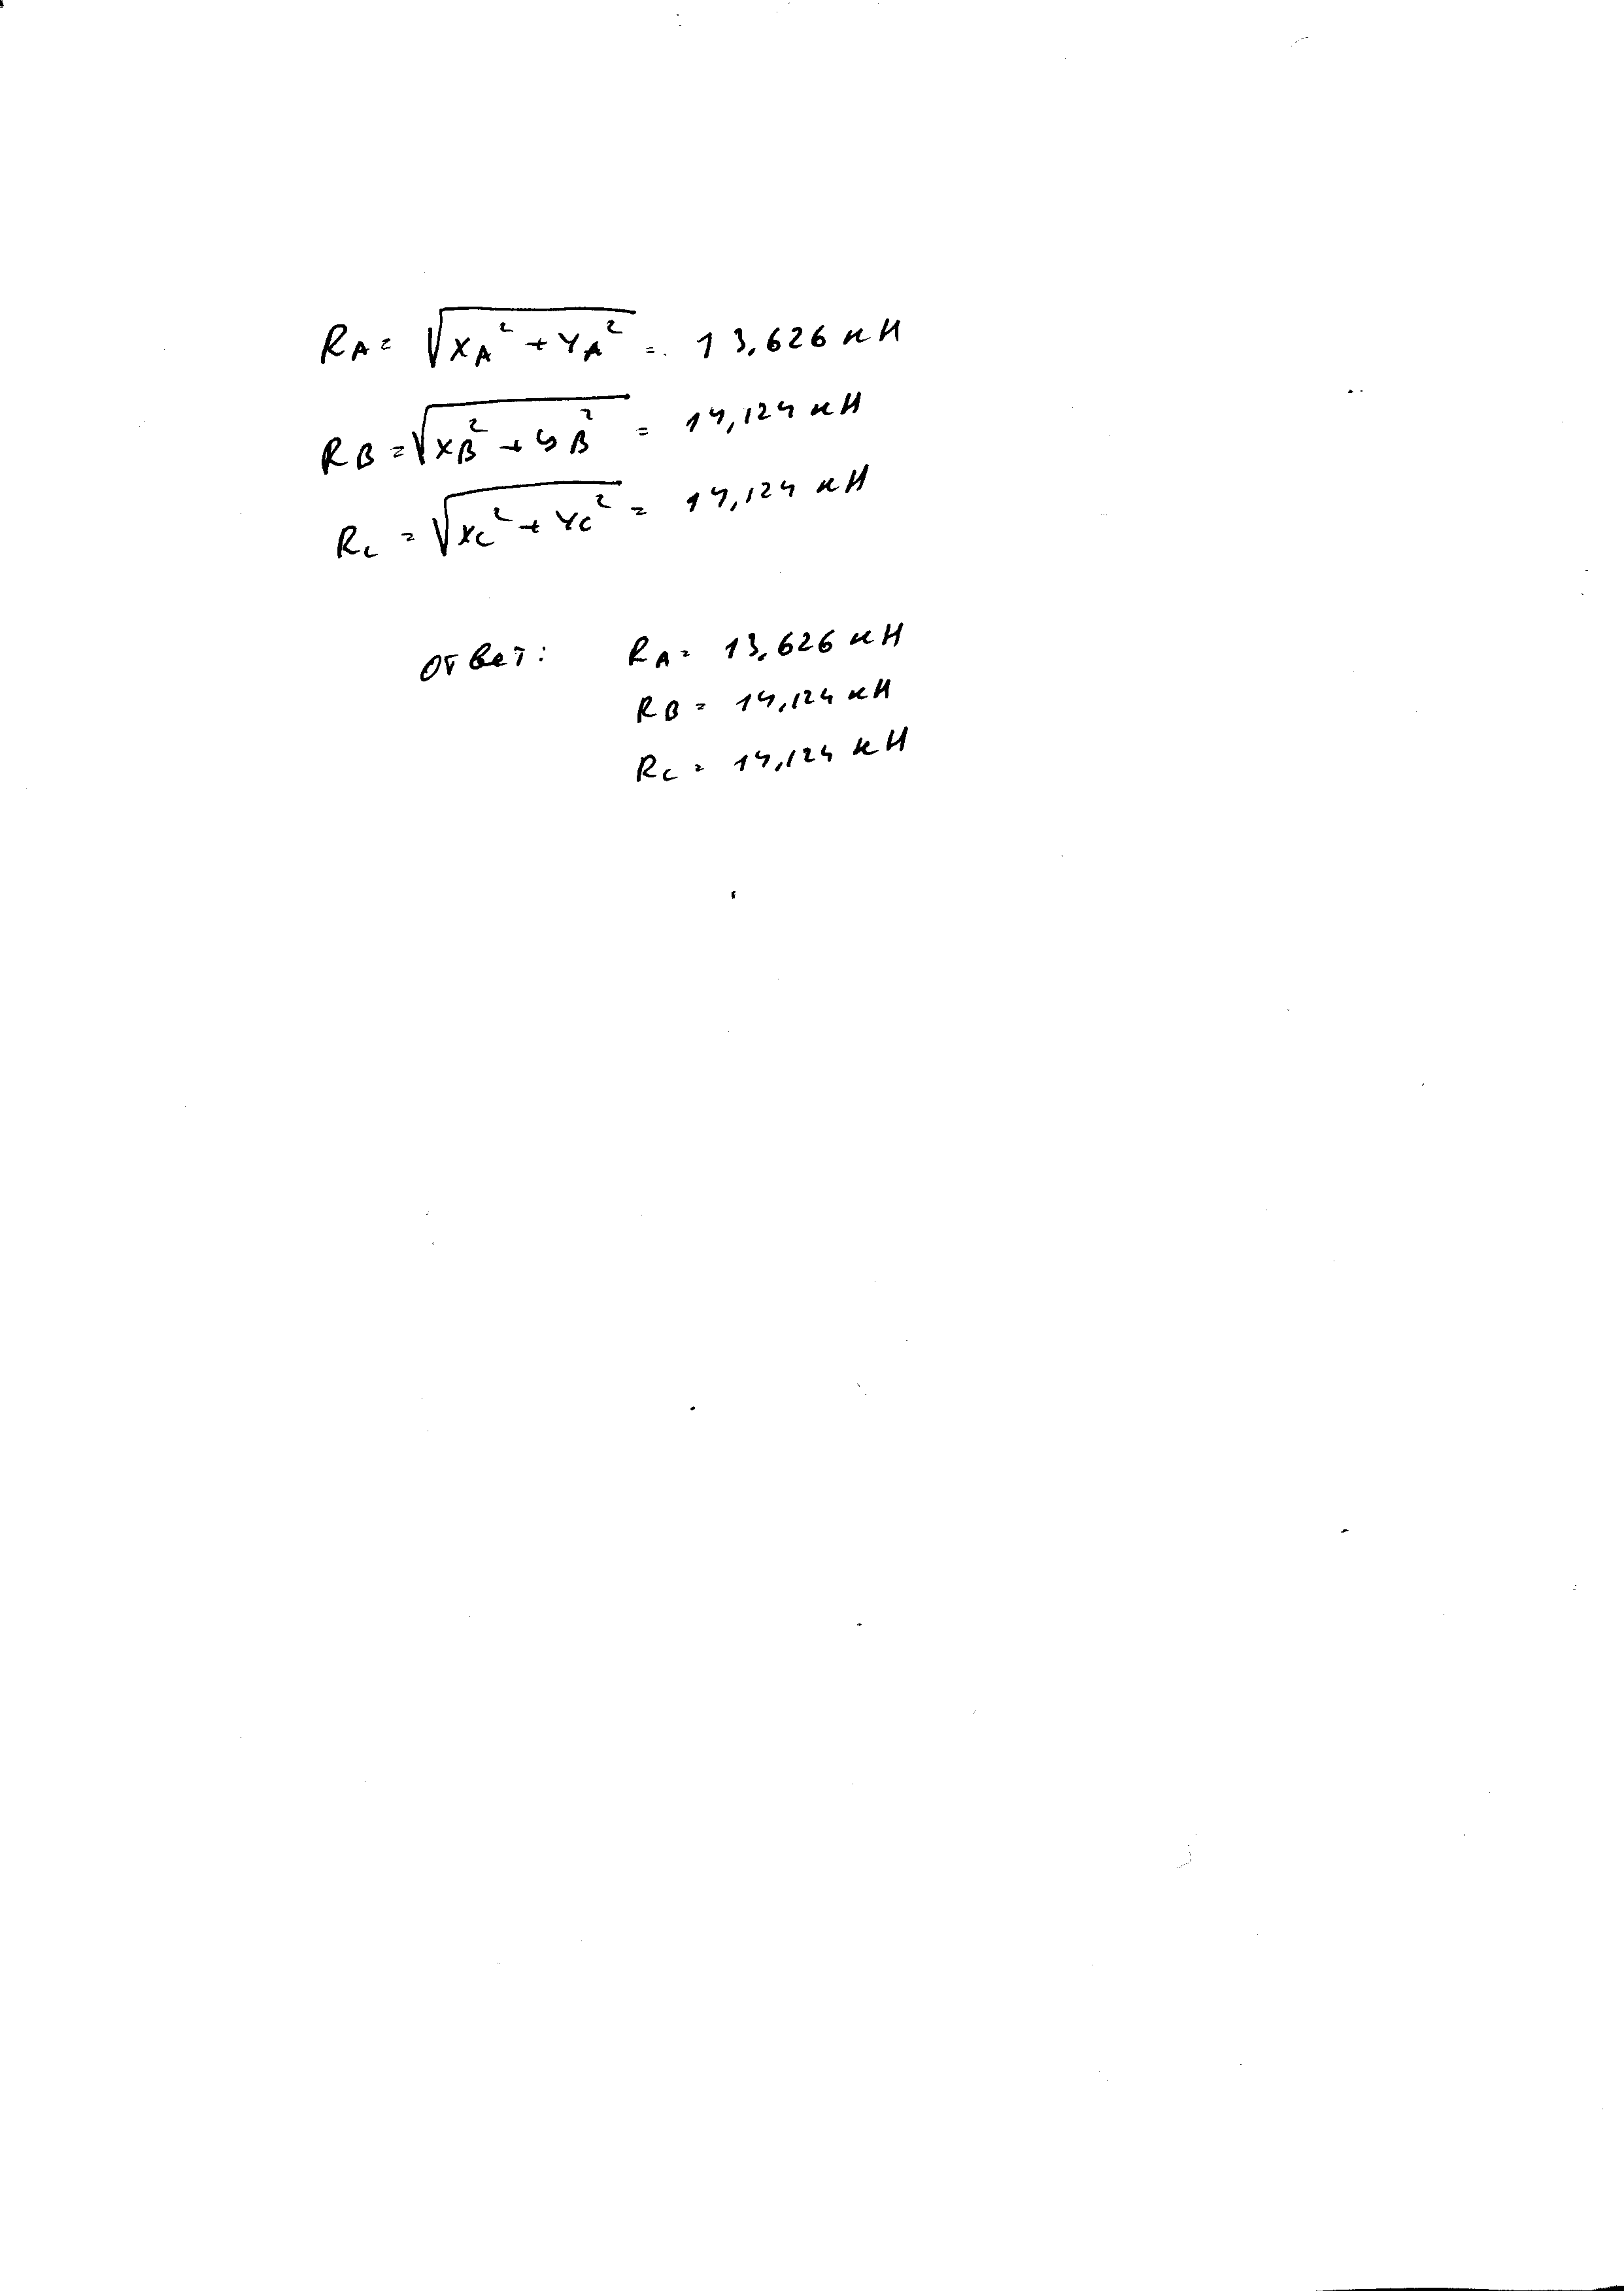 RA = √XA² + YA² = 13,626 кН
RB = √XB² + YB² = 14,124 кН
RC = √XC² + YC² = 14,124 кН
Ответ: RA = 13,626 кН
RB = 14,124 кН
RC = 14,124 кН